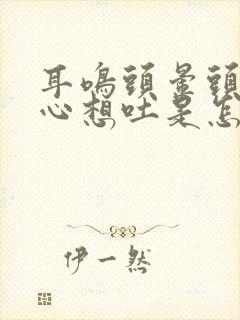 耳鳴頭暈頭
心想吐是怎
伊一然